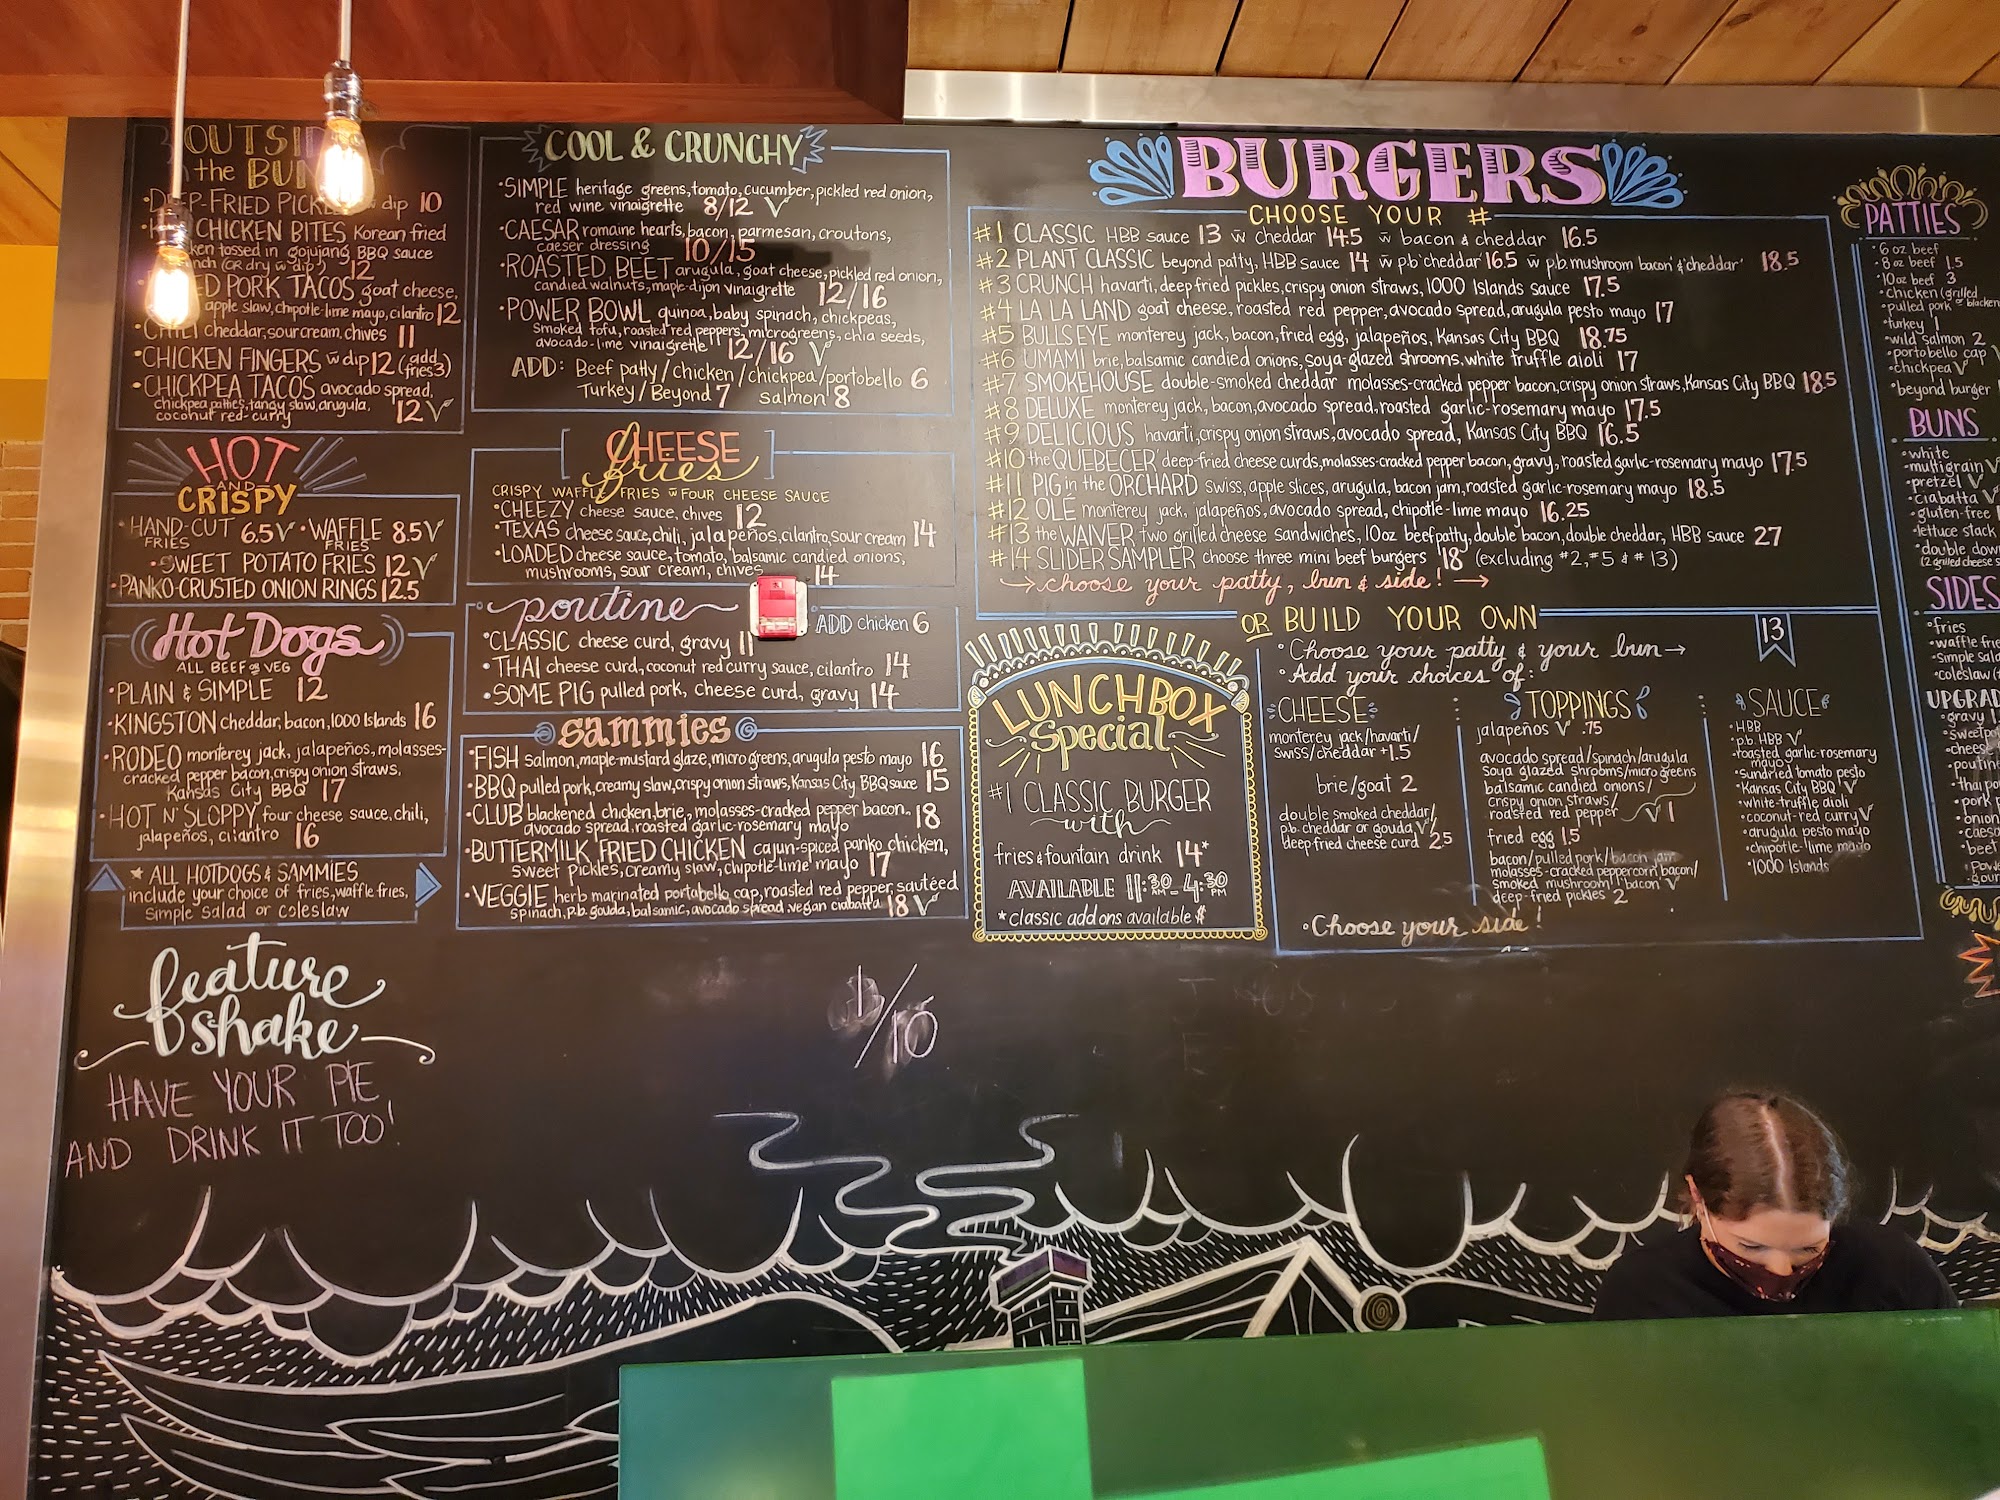 OUTSIDE
the BUN
•DEEP-FRIED PICKLES w̄ dip 10
CHICKEN BITES Korean fried
tossed in gojujang BBQ sauce
(OR dry w̄ dip) 12
PORK TACOS goat cheese,
apple slaw, chipotle-lime mayo, cilantro 12
•CHILI cheddar, sour cream, chives 11
•CHICKEN FINGERS w̄ dip 12 (add fries 3)
•CHICKPEA TACOS avocado spread,
chickpea patties, tangy slaw, arugula,
coconut red-curry 12 V
HOT
AND
CRISPY
•HAND-CUT FRIES 6.5 V •WAFFLE FRIES 8.5 V
•SWEET POTATO FRIES 12 V
•PANKO-CRUSTED ONION RINGS 12.5
Hot Dogs
ALL BEEF OR VEG
•PLAIN & SIMPLE 12
•KINGSTON cheddar, bacon, 1000 Islands 16
•RODEO monterey jack, jalapeños, molasses-
cracked pepper bacon, crispy onion straws,
Kansas City BBQ 17
•HOT N' SLOPPY four cheese sauce, chili,
jalapeños, cilantro 16
★ ALL HOTDOGS & SAMMIES
include your choice of fries, waffle fries,
simple salad or coleslaw
feature
shake
HAVE YOUR PIE
AND DRINK IT TOO!
COOL & CRUNCHY
•SIMPLE heritage greens, tomato, cucumber, pickled red onion,
red wine vinaigrette 8/12 V
•CAESAR romaine hearts, bacon, parmesan, croutons,
caeser dressing 10/15
•ROASTED BEET arugula, goat cheese, pickled red onion,
candied walnuts, maple-dijon vinaigrette 12/16
•POWER BOWL quinoa, baby spinach, chickpeas,
smoked tofu, roasted red peppers, microgreens, chia seeds,
avocado-lime vinaigrette 12/16 V
ADD: Beef patty/chicken/chickpea/portobello 6
Turkey/Beyond 7 salmon 8
CHEESE
fries
CRISPY WAFFLE FRIES w̄ FOUR CHEESE SAUCE
•CHEEZY cheese sauce, chives 12
•TEXAS cheese sauce, chili, jalapeños, cilantro, sour cream 14
•LOADED cheese sauce, tomato, balsamic candied onions,
mushrooms, sour cream, chives 14
poutine
ADD chicken 6
•CLASSIC cheese curd, gravy 11
•THAI cheese curd, coconut red curry sauce, cilantro 14
•SOME PIG pulled pork, cheese curd, gravy 14
sammies
•FISH salmon, maple-mustard glaze, micro greens, arugula pesto mayo 16
•BBQ pulled pork, creamy slaw, crispy onion straws, Kansas City BBQ sauce 15
•CLUB blackened chicken, brie, molasses-cracked pepper bacon,
avocado spread, roasted garlic-rosemary mayo 18
•BUTTERMILK FRIED CHICKEN cajun-spiced panko chicken,
sweet pickles, creamy slaw, chipotle-lime mayo 17
•VEGGIE herb marinated portabello cap, roasted red pepper, sautéed
spinach, p.b. gouda, balsamic, avocado spread, vegan ciabatta 18 V
/10
BURGERS
CHOOSE YOUR #
#1 CLASSIC HBB sauce 13 w̄ cheddar 14.5 w̄ bacon & cheddar 16.5
#2 PLANT CLASSIC beyond patty, HBB sauce 14 w̄ p.b 'cheddar' 16.5 w̄ p.b. mushroom 'bacon' & 'cheddar' 18.5
#3 CRUNCH havarti, deep fried pickles, crispy onion straws, 1000 Islands sauce 17.5
#4 LA LA LAND goat cheese, roasted red pepper, avocado spread, arugula pesto mayo 17
#5 BULLSEYE monterey jack, bacon, fried egg, jalapeños, Kansas City BBQ 18.75
#6 UMAMI brie, balsamic candied onions, soya-glazed shrooms, white truffle aioli 17
#7 SMOKEHOUSE double-smoked cheddar molasses-cracked pepper bacon, crispy onion straws, Kansas City BBQ 18.5
#8 DELUXE monterey jack, bacon, avocado spread, roasted garlic-rosemary mayo 17.5
#9 DELICIOUS havarti, crispy onion straws, avocado spread, Kansas City BBQ 16.5
#10 the QUEBECER deep-fried cheese curds, molasses-cracked pepper bacon, gravy, roasted garlic-rosemary mayo 17.5
#11 PIG in the ORCHARD swiss, apple slices, arugula, bacon jam, roasted garlic-rosemary mayo 18.5
#12 OLÉ monterey jack, jalapeños, avocado spread, chipotle-lime mayo 16.25
#13 the WAIVER two grilled cheese sandwiches, 10oz beef patty, double bacon, double cheddar, HBB sauce 27
#14 SLIDER SAMPLER choose three mini beef burgers 18 (excluding #2, #5 & #13)
→ choose your patty, bun & side! →
LUNCHBOX
Special
#1 CLASSIC BURGER
with
fries & fountain drink 14*
AVAILABLE 11:30 AM - 4:30 PM
*classic add ons available $
OR BUILD YOUR OWN
13
•Choose your patty & your bun→
•Add your choices of:
CHEESE
monterey jack/havarti/
swiss/cheddar +1.5
brie/goat 2
double smoked cheddar/
p.b. cheddar or gouda V/
deep fried cheese curd 2.5
TOPPINGS
jalapeños V .75
avocado spread/spinach/arugula
soya glazed shrooms/micro greens
balsamic candied onions/
crispy onion straws/
roasted red pepper V 1
fried egg 1.5
bacon/pulled pork/bacon jam
molasses-cracked peppercorn bacon/
smoked mushroom 'bacon' V
deep-fried pickles 2
SAUCE
•HBB
•p.b. HBB V
•roasted garlic-rosemary
mayo
•sundried tomato pesto
•Kansas City BBQ V
•white-truffle aioli
•coconut-red curry V
•arugula pesto mayo
•chipotle-lime mayo
•1000 Islands
•Choose your side!
PATTIES
•6 oz beef
•8 oz beef 1.5
•10oz beef 3
•chicken (grilled
•pulled pork or blackened
•turkey 1
•wild salmon 2
•portobello cap
•chickpea V
•beyond burger
BUNS
•white
•multigrain V
•pretzel V
•ciabatta V
•gluten-free
•lettuce stack
•double down
(2 grilled cheese
SIDES
•fries
•waffle fries
•simple salad
•coleslaw
UPGRAD
•gravy 1
•sweet
•cheese
•poutine
•thai
•pork
•onion
•caesa
•beet
•powe
•gour